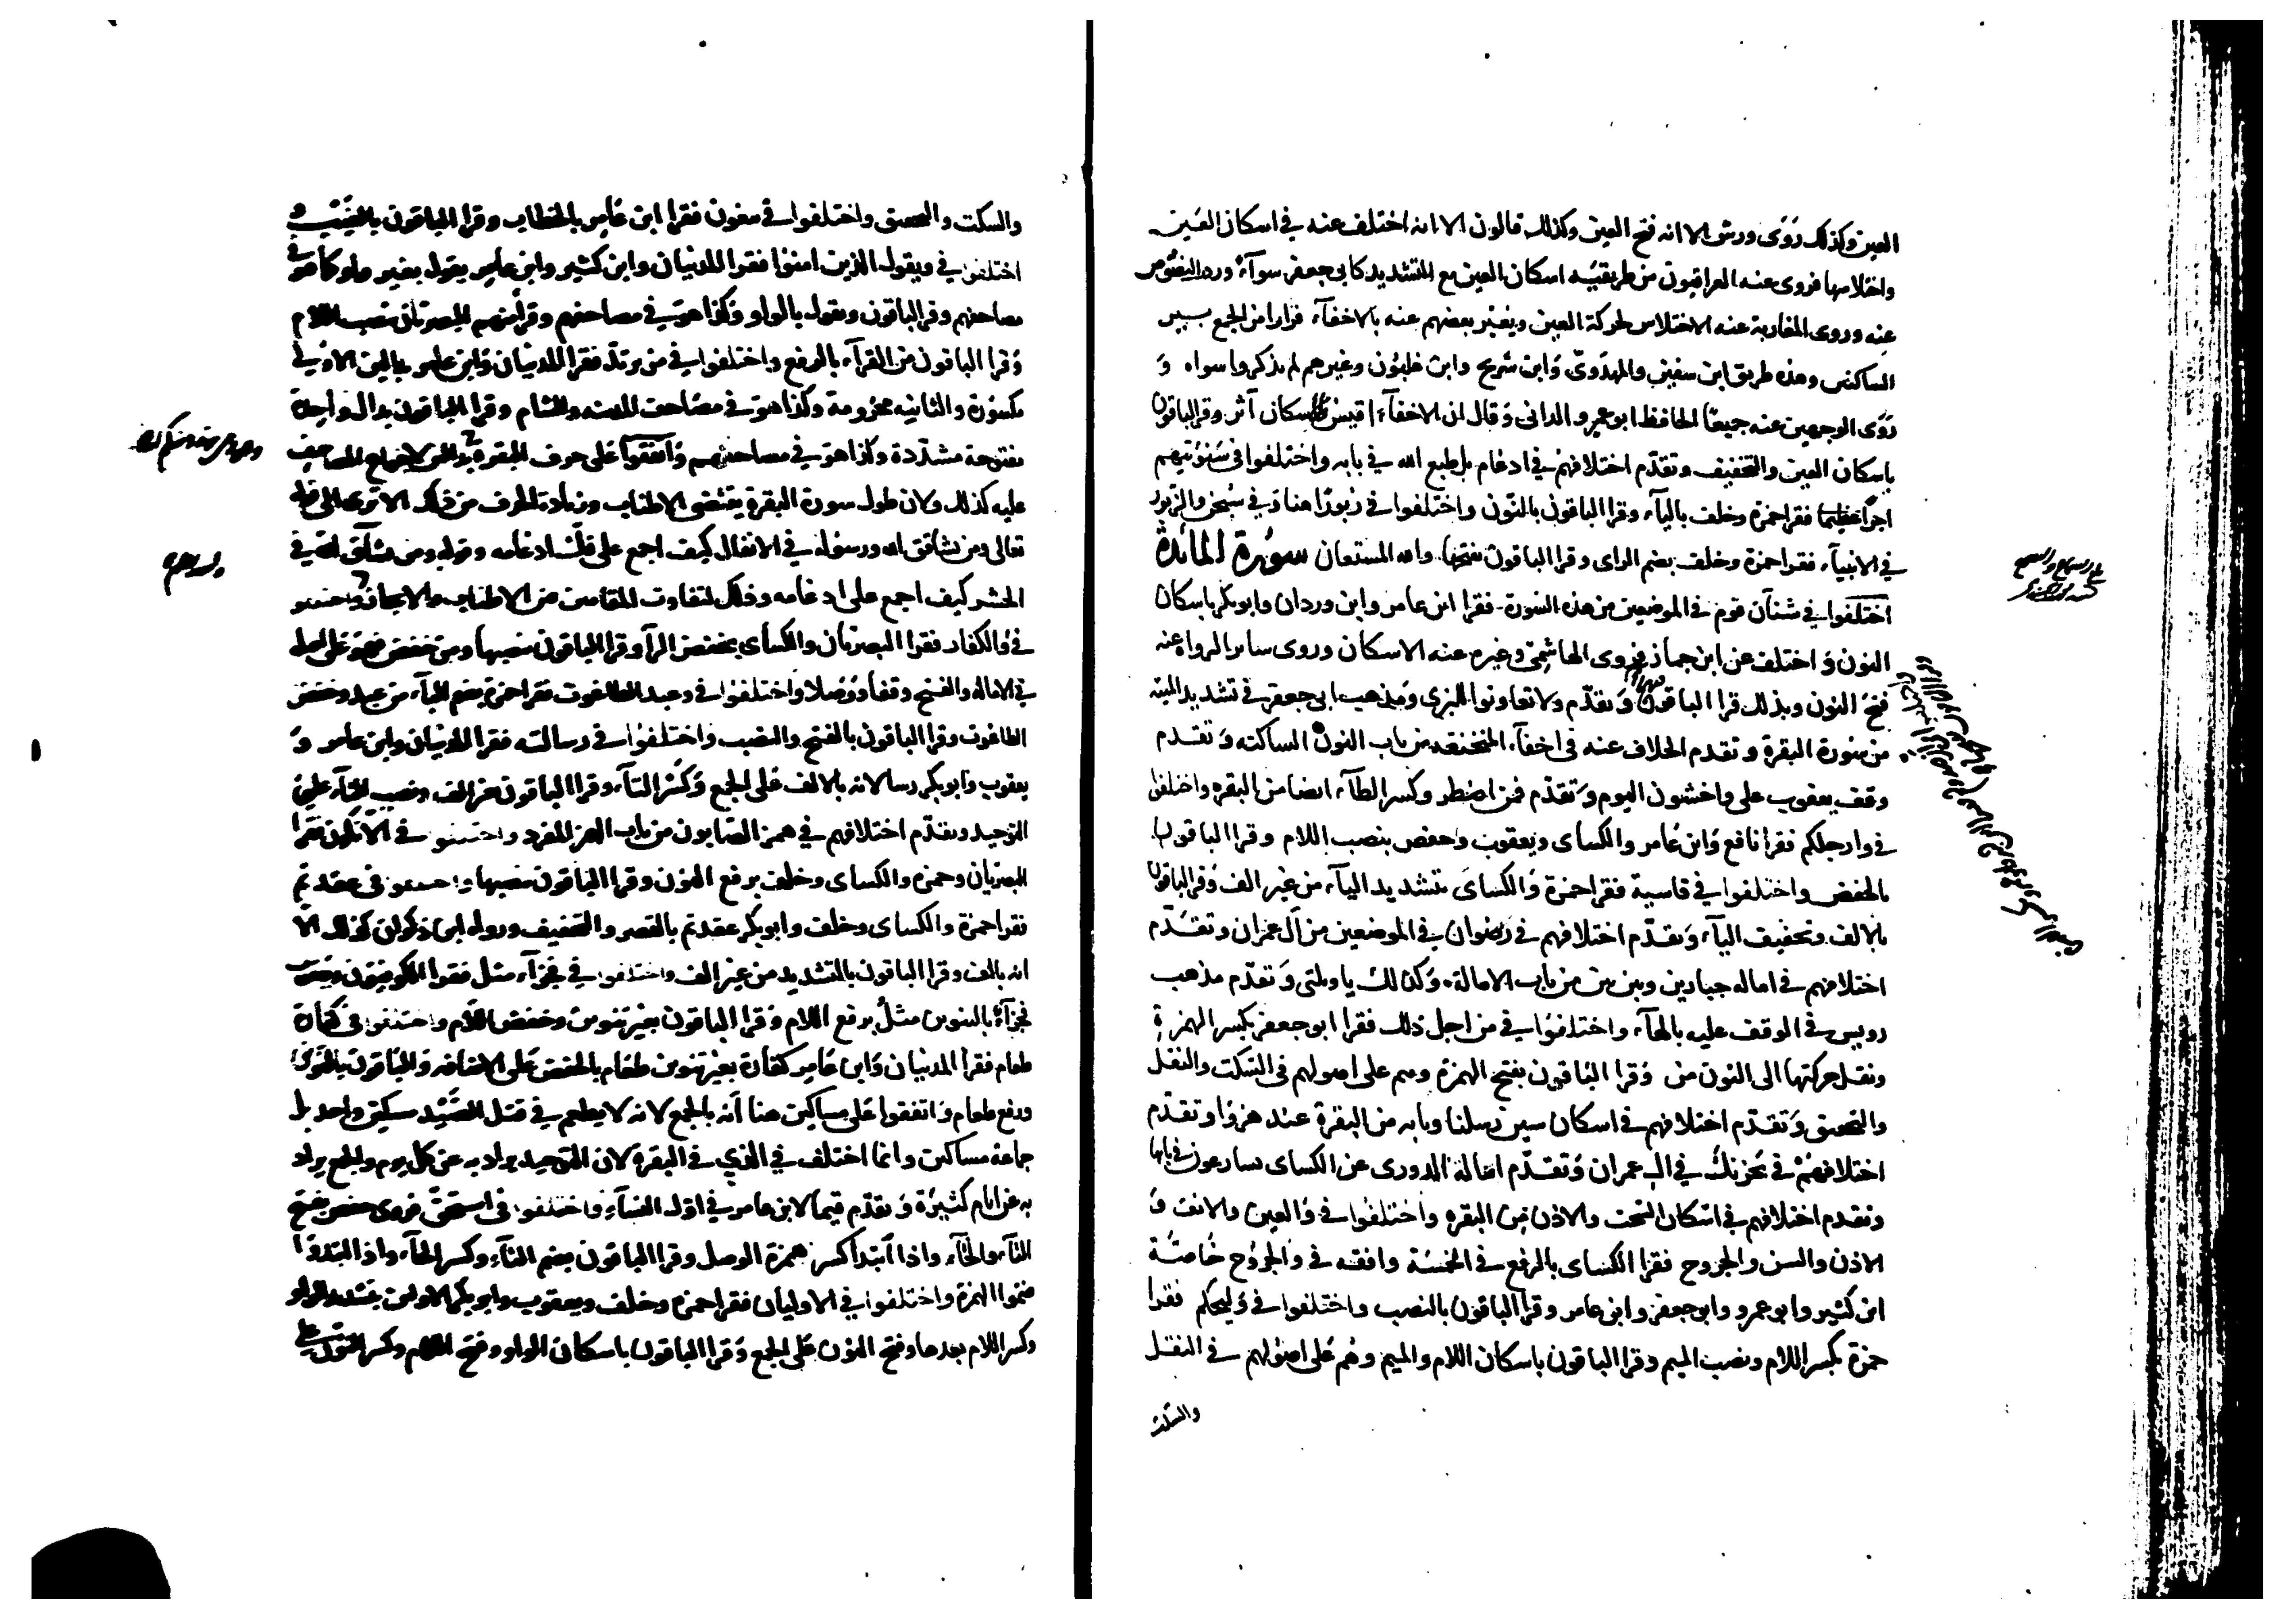 العين وكذلك روى ورش الا انه فتح العين وكذلك قالون الا انه اختلف عنه في اسكان العين
واختلاسها فروى عنه العراقيون من طريقيه اسكان العين مع التشديد كابي جعفر سوآء
عنه وروى المغاربة عنه الاختلاس لحركة العين ويعبر بعضهم عنه بالاخفآء فرارا من الجمع بين
الساكنين وهذه طريق ابن سفين والمهدوي وابن شريح وابن غلبون وغيرهم لم يذكروا سواه و
روى الوجهين عنه جميعا الحافظ ابو عمرو الداني وقال ان الاخفآء اقيس والاسكان آثر وقرا الباقون
باسكان العين والتخفيف وتقدم اختلافهم في ادغام بل طبع الله في بابه واختلفوا في سنؤتيهم
اجرا عظيما فقرا حمزة وخلف باليآء وقرا الباقون بالنون واختلفوا في زبورا هنا وفي سبحن والزبور
في الانبيآء فقرا حمزة وخلف بضم الزاى وقرا الباقون بفتحها والله المستعان سورة المائدة
اختلفوا في شنآن قوم في الموضعين من هذه السورة فقرا ابن عامر وابن وردان وابو بكر باسكان
النون واختلف عن ابن جماز فروى الهاشمي وغيره عنه الاسكان وروى ساير الرواة عنه
فتح النون وبذلك قرا الباقون وتقدم ولا تعاونوا للبزى ومذهب ابى جعفر في تشديد الميتة
من سورة البقرة وتقدم الخلاف عنه في اخفآء المنخنقة من باب النون الساكنة وتقدم
وقف يعقوب على واخشون اليوم وتقدم فمن اضطر وكسر الطآء ايضا من البقرة واختلفوا
في وارجلكم فقرا نافع وابن عامر والكساى ويعقوب وحفص بنصب اللام وقرا الباقون
بالخفض واختلفوا في قاسية فقرا حمزة والكساى بتشديد اليآء من غير الف وقرا الباقون
بالالف وتخفيف اليآء وتقدم اختلافهم في رضوان في الموضعين من آل عمران وتقدم
اختلافهم في امالة جبارين وبين بين من باب الامالة وكذلك يا ويلتى وتقدم مذهب
رويس في الوقف عليه بالهآء واختلفوا في من اجل ذلك فقرا ابو جعفر بكسر الهمزة
ونقل حركتها الى النون من وقرا الباقون بفتح الهمزة وهم على اصولهم في السكت والنقل
والتحقيق وتقدم اختلافهم في اسكان سين رسلنا وبابه من البقرة عند هزوا وتقدم
اختلافهم في يحزنك في آل عمران وتقدم امالة الدورى عن الكساى يسارعون في بابها
وتقدم اختلافهم في اسكان السحت والاذن من البقرة واختلفوا في والعين والانف و
الاذن والسن والجروح فقرا الكساى بالرفع في الخمسة وافقه في والجروح خاصة
ابن كثير وابو عمرو وابو جعفر وابن عامر وقرا الباقون بالنصب واختلفوا في وليحكم فقرا
حمزة بكسر اللام ونصب الميم وقرا الباقون باسكان اللام والميم وهم على اصولهم في النقل
والسكت
والسكت والتحقيق واختلفوا في يبغون فقرا ابن عامر بالخطاب وقرا الباقون بالغيب و
اختلفوا في ويقول الذين امنوا فقرا المدنيان وابن كثير وابن عامر يقول بغير واو كما هو في
مصاحفهم وقرا الباقون ويقول بالواو وكذا هو في مصاحفهم وقرأ منهم البصريان بنصب اللام
وقرا الباقون من القرآء بالرفع واختلفوا في من يرتد فقرا المدنيان وابن عامر بدالين الاولى
مكسورة والثانية مجزومة وكذا هو في مصاحف المدينة والشام وقرا الباقون بدال واحدة
مفتوحة مشددة وكذا هو في مصاحفهم واتفقوا على حرف البقرة لاجماع المصاحف
عليه كذلك ولان طول سورة البقرة يقتضى الاطناب وزيادة الحرف من ذلك الا ترى الى قوله
تعالى ومن يشاقق الله ورسوله في الانفال كيف اجمع على فك ادغامه وقوله ومن يشآق الله في
الحشر كيف اجمع على ادغامه وذلك لتفاوت المقامين من الاطناب والايجاز واختلفوا
في والكفار فقرا البصريان والكساى بخفض الرآ وقرا الباقون بنصبها ومن خفض فهو على اصله
في الامالة والفتح وقفا ووصلا واختلفوا في وعبد الطاغوت فقرا حمزة بضم البآء من عبد وخفض
الطاغوت وقرا الباقون بالفتح والنصب واختلفوا في رسالته فقرا المدنيان وابن عامر و
يعقوب وابو بكر رسالاته بالالف على الجمع وكسر التآء وقرا الباقون بغير الف ونصب التآء على
التوحيد وتقدم اختلافهم في همز الصابون من باب الهمز المفرد واختلفوا في الا تكون فقرا
البصريان وحمزة والكساى وخلف برفع النون وقرا الباقون بنصبها واختلفوا في عقدتم
فقرا حمزة والكساى وخلف وابو بكر عقدتم بالقصر والتخفيف ورواه ابن ذكوان كذلك الا
انه بالف وقرا الباقون بالتشديد من غير الف واختلفوا في فجزآء مثل فقرا الكوفيون ويعقوب
فجزآء بالتنوين مثل برفع اللام وقرا الباقون بغير تنوين وخفض اللام واختلفوا في كفارة
طعام فقرا المدنيان وابن عامر كفارة بغير تنوين طعام بالخفض على الاضافة والباقون بالتنوين
ورفع طعام واتفقوا على مساكين هنا أنه بالجمع لانه لا يطعم في قتل الصيد مسكين واحد بل
جماعة مساكين وانما اختلف في الذي في البقرة لان التوحيد يراد به عن كل يوم والجمع يراد
به عن ايام كثيرة وتقدم قيما لابن عامر في اول النسآء واختلفوا في استحق فروى حفص بفتح
التآء والحآء واذا ابتدأ كسر همزة الوصل وقرا الباقون بضم التآء وكسر الحآء واذا ابتدؤا
ضموا الهمزة واختلفوا في الاوليان فقرا حمزة وخلف ويعقوب وابو بكر الاولين بتشديد الواو
وكسر اللام بعدها وفتح النون على الجمع وقرا الباقون باسكان الواو وفتح اللام وكسر النون على